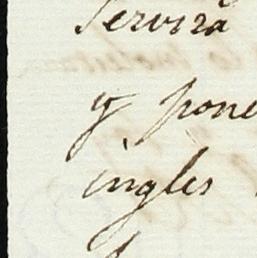 Servirá
y pone
ingles